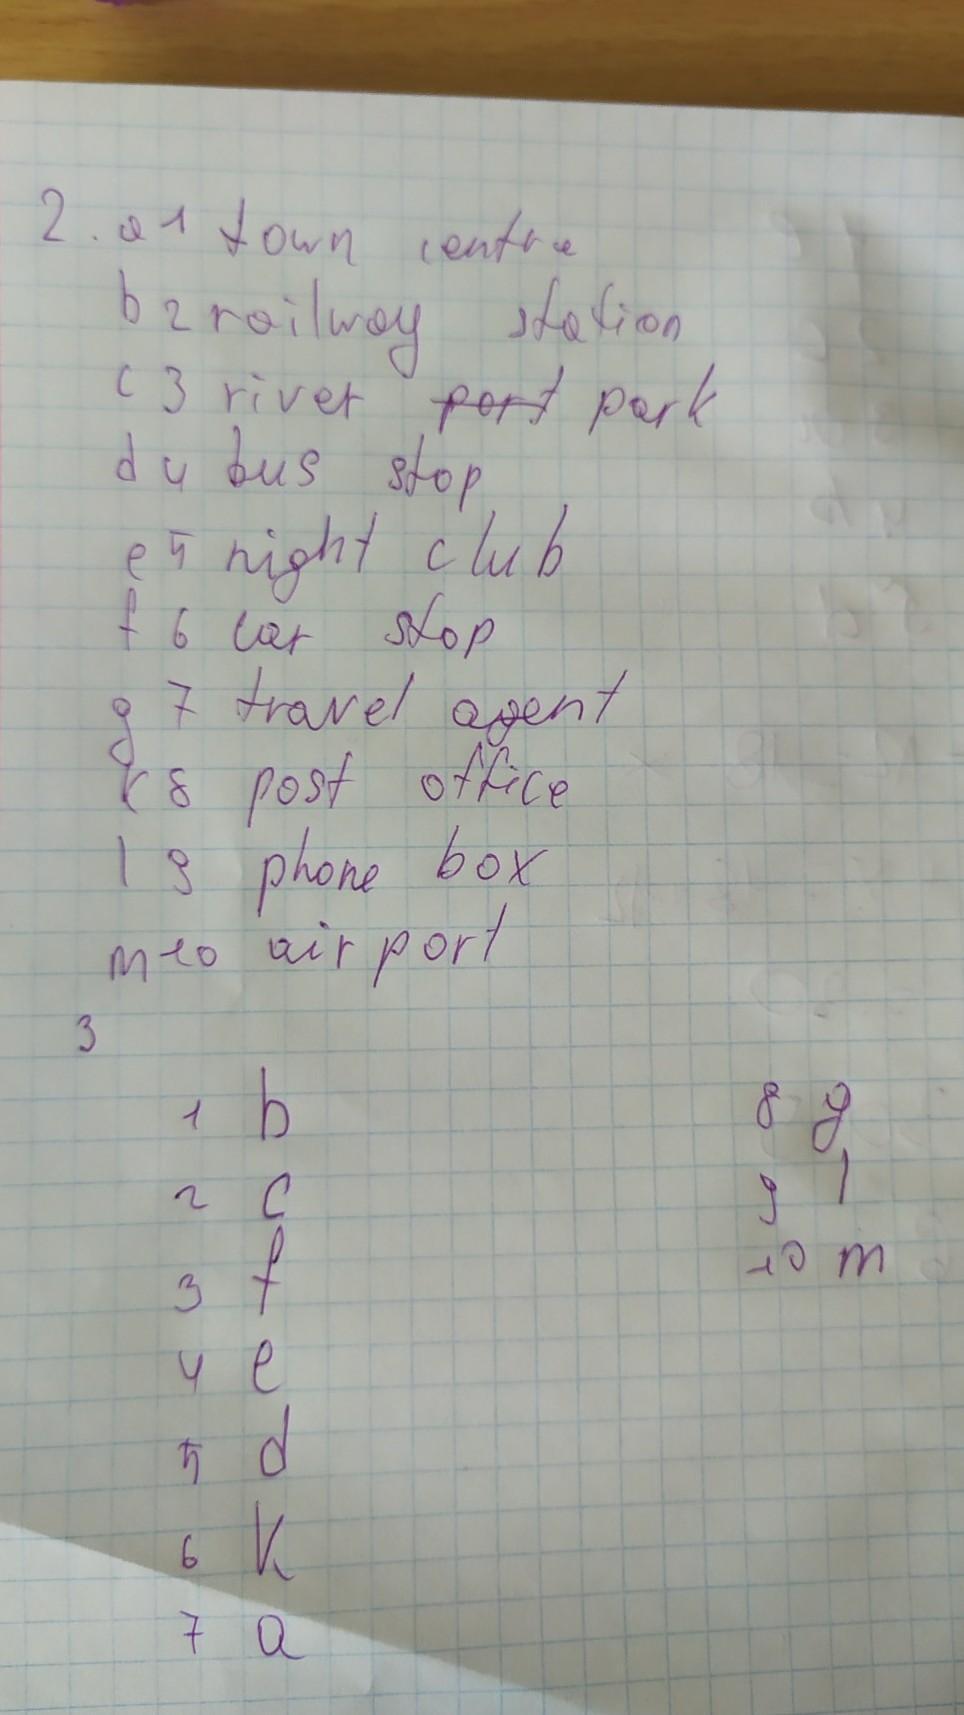 2. a 1 town centre
b 2 railway station
c 3 river port park
d 4 bus stop
e 5 night club
f 6 car stop
g 7 travel agent
k 8 post office
l 9 phone box
m 10 airport
3
1 b
2 c
3 f
4 e
5 d
6 k
7 a
8 g
9 l
10 m